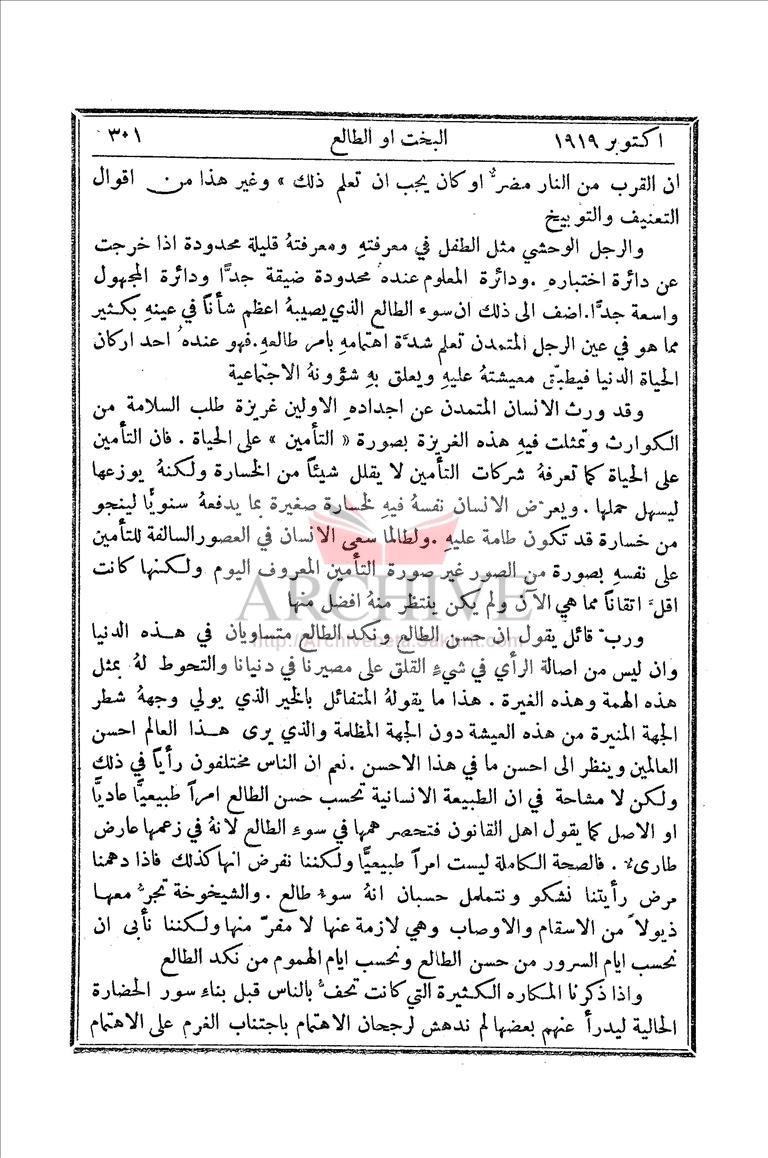 اكتوبر ١٩١٩ البخت او الطالع ٣٠١
ان القرب من النار مضرٌّ او كان يجب ان تعلم ذلك » وغير هذا من اقوال
التعنيف والتوبيخ
والرجل الوحشي مثل الطفل في معرفتهِ ومعرفتهُ قليلة محدودة اذا خرجت
عن دائرة اختبارهِ . ودائرة المعلوم عندهُ محدودة ضيقة جدًّا ودائرة المجهول
واسعة جدًّا . اضف الى ذلك ان سوء الطالع الذي يصيبهُ اعظم شأناً في عينهِ بكثير
مما هو في عين الرجل المتمدن تعلم شدَّة اهتمامهِ بامر طالعهِ . فهو عندهُ احد اركان
الحياة الدنيا فيطبّق معيشتهُ عليهِ ويعلق بهِ شؤونهُ الاجتماعية
وقد ورث الانسان المتمدن عن اجدادهِ الاولين غريزة طلب السلامة من
الكوارث وتمثلت فيهِ هذه الغريزة بصورة « التأمين » على الحياة . فان التأمين
على الحياة كما تعرفهُ شركات التأمين لا يقلل شيئاً من الخسارة ولكنهُ يوزعها
ليسهل حملها . ويعرّض الانسان نفسهُ فيهِ لخسارة صغيرة بما يدفعهُ سنويًّا لينجو
من خسارة قد تكون طامة عليهِ . ولطالما سعى الانسان في العصور السالفة للتأمين
على نفسهِ بصورة من الصور غير صورة التأمين المعروف اليوم ولكنها كانت
اقلَّ اتقاناً مما هي الآن ولم يكن ينتظر منهُ افضل منها
ARCHIVE
http://Archivebeta.Sakhrit.com
وربَّ قائل يقول ان حسن الطالع ونكد الطالع متساويان في هذه الدنيا
وان ليس من اصالة الرأي في شيءٍ القلق على مصيرنا في دنيانا والتحوط لهُ بمثل
هذه الهمة وهذه الغيرة . هذا ما يقولهُ المتفائل بالخير الذي يولي وجههُ شطر
الجهة المنيرة من هذه العيشة دون الجهة المظلمة والذي يرى هذا العالم احسن
العالمين وينظر الى احسن ما في هذا الاحسن . نعم ان الناس مختلفون رأياً في ذلك
ولكن لا مشاحة في ان الطبيعة الانسانية تحسب حسن الطالع امراً طبيعيًّا عاديًّا
او الاصل كما يقول اهل القانون فتحصر همها في سوء الطالع لانهُ في زعمها عارض
طارىء . فالصحة الكاملة ليست امراً طبيعيًّا ولكننا نفرض انها كذلك فاذا دهمنا
مرض رأيتنا نشكو ونتململ حسبان انهُ سوء طالع . والشيخوخة تجرُّ معها
ذيولاً من الاسقام والاوصاب وهي لازمة عنها لا مفرّ منها ولكننا نأبى ان
نحسب ايام السرور من حسن الطالع ونحسب ايام الهموم من نكد الطالع
واذا ذكرنا المكاره الكثيرة التي كانت تحفُّ بالناس قبل بناء سور الحضارة
الحالية ليدرأ عنهم بعضها لم ندهش لرجحان الاهتمام باجتناب الغرم على الاهتمام